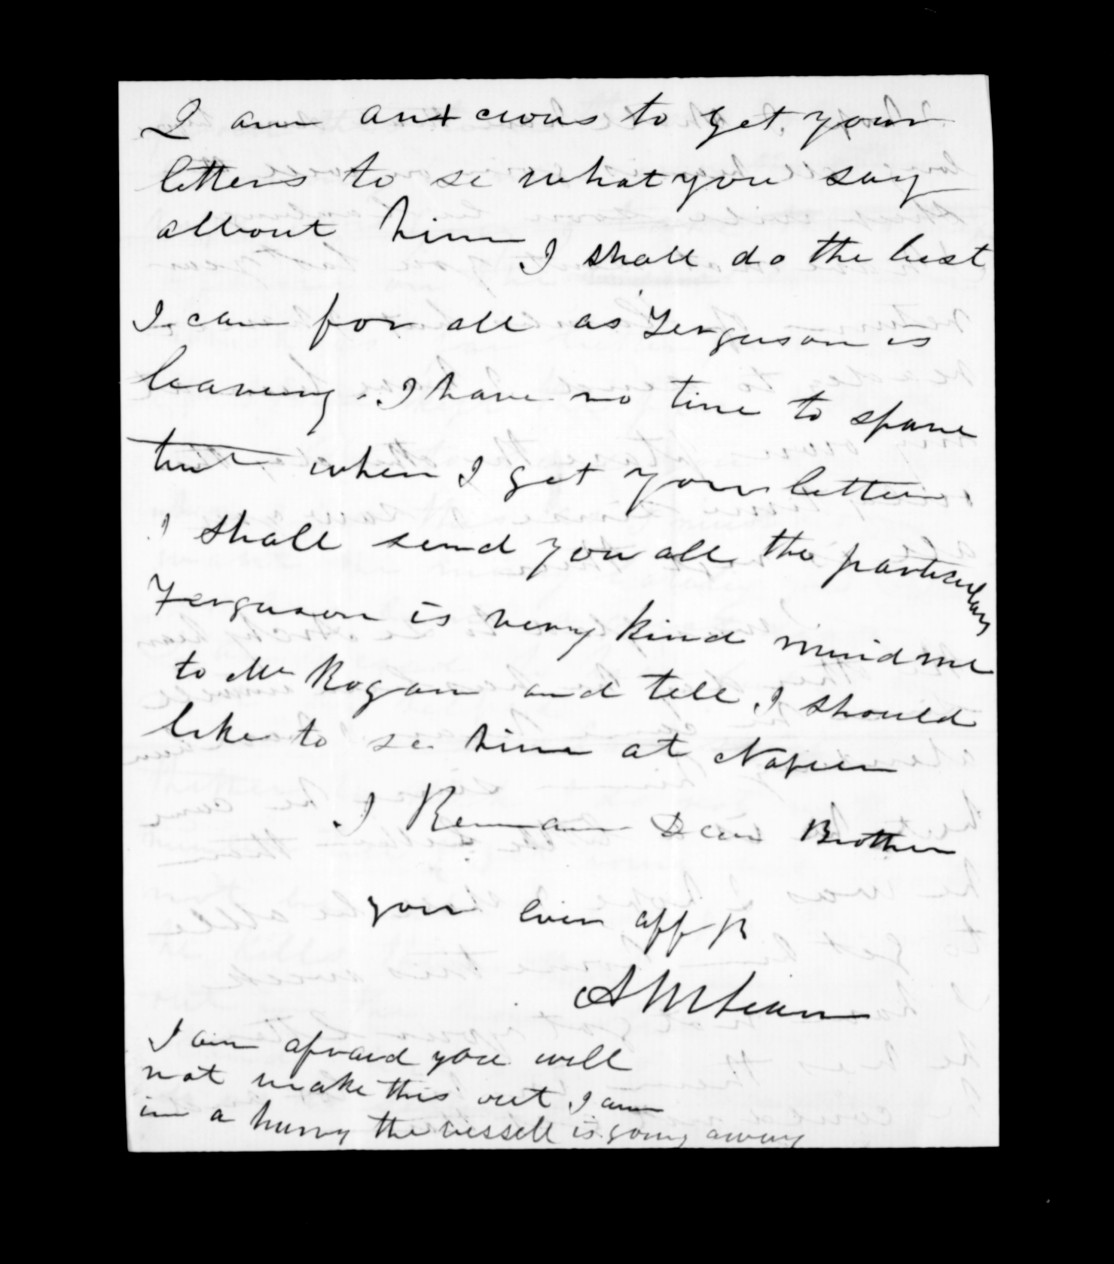 I am anxcious to get your
letters to se what you say
about him I shall do the best
I can for all as Ferguson is
leaving. I have no time to spare
but when I get your letters
I shall send you all the particulars
Ferguson is very kind mind me
to Mr Rogan and tell I should
like to se him at Napier
I Remain Dear Brother
your ever aff Br
A McLean
I am afraid you will
not make this out I am
in a hurry the vessell is going away